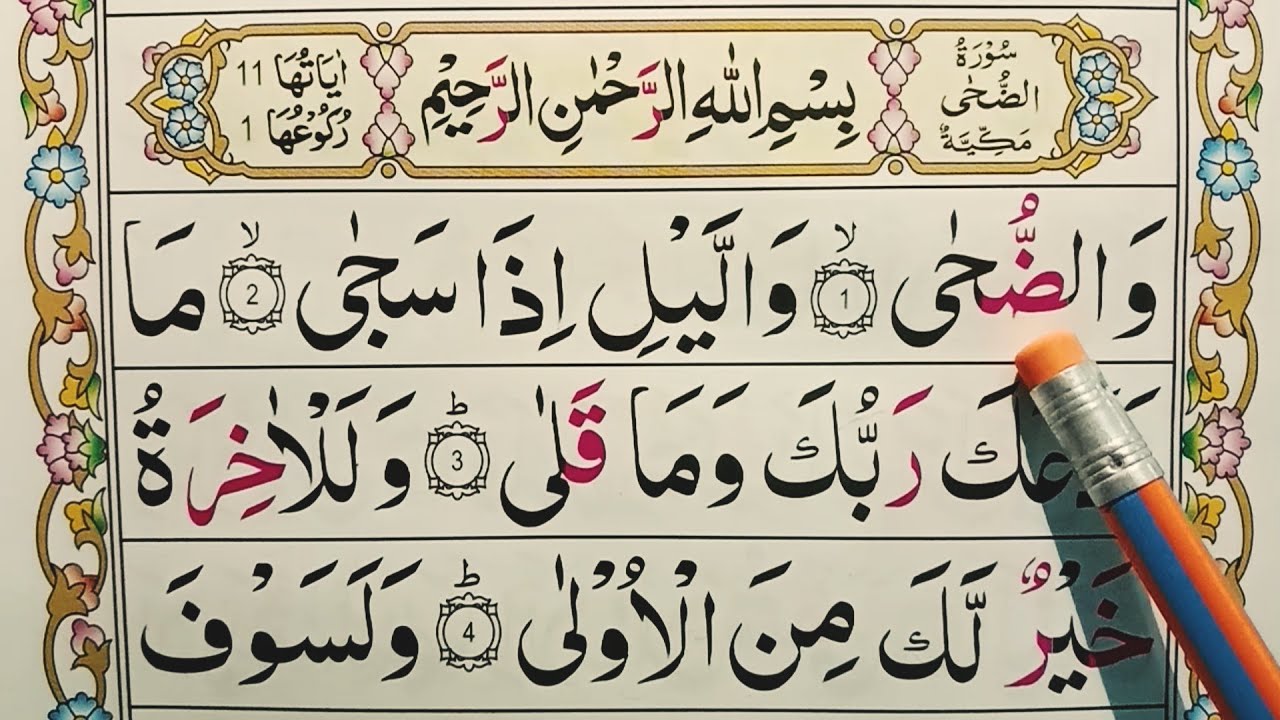 سُوْرَةُ الضُّحٰى مَكِّيَّةٌ
بِسْمِ اللّٰهِ الرَّحْمٰنِ الرَّحِيْمِ
اٰيَاتُهَا 11
رُكُوْعُهَا 1
وَالضُّحٰى ۙ 1 وَالَّيْلِ اِذَا سَجٰى ۙ 2 مَا
وَدَّعَكَ رَبُّكَ وَمَا قَلٰى ؕ 3 وَلَلْاٰخِرَةُ
خَيْرٌ لَّكَ مِنَ الْاُوْلٰى ؕ 4 وَلَسَوْفَ